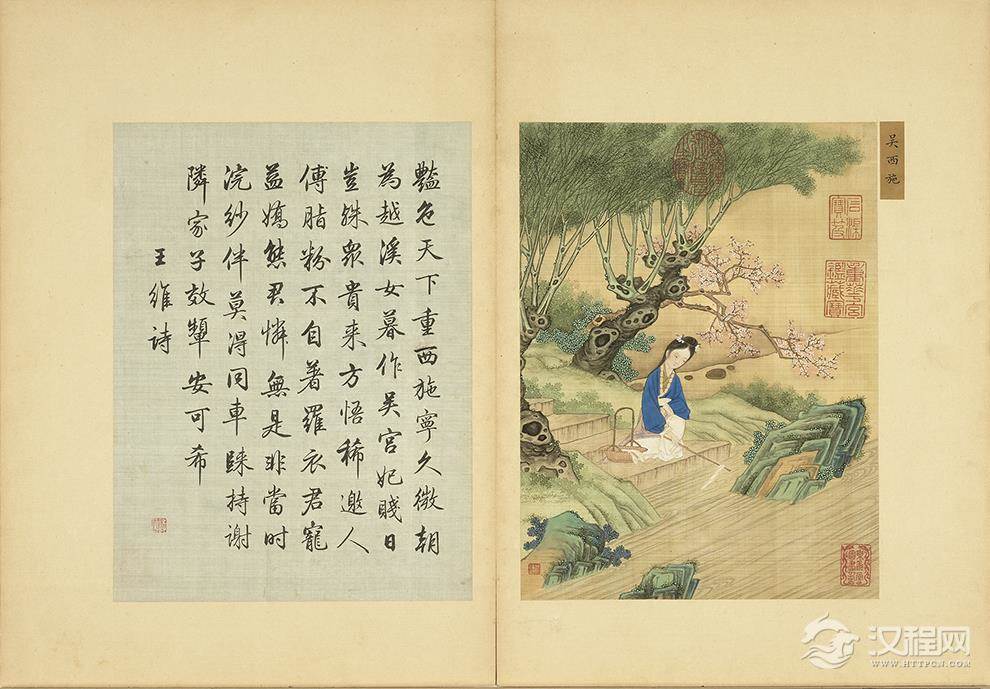 吳西施
石渠寶笈
重華宮鑑藏寶
豔色天下重西施寧久微朝
為越溪女暮作吳宮妃賤日
豈殊眾貴來方悟稀邀人
傅脂粉不自著羅衣君寵
益嬌態君憐無是非當時
浣紗伴莫得同車歸持謝
隣家子效顰安可希
王維詩
汉程网
WWW.HTTPCN.COM